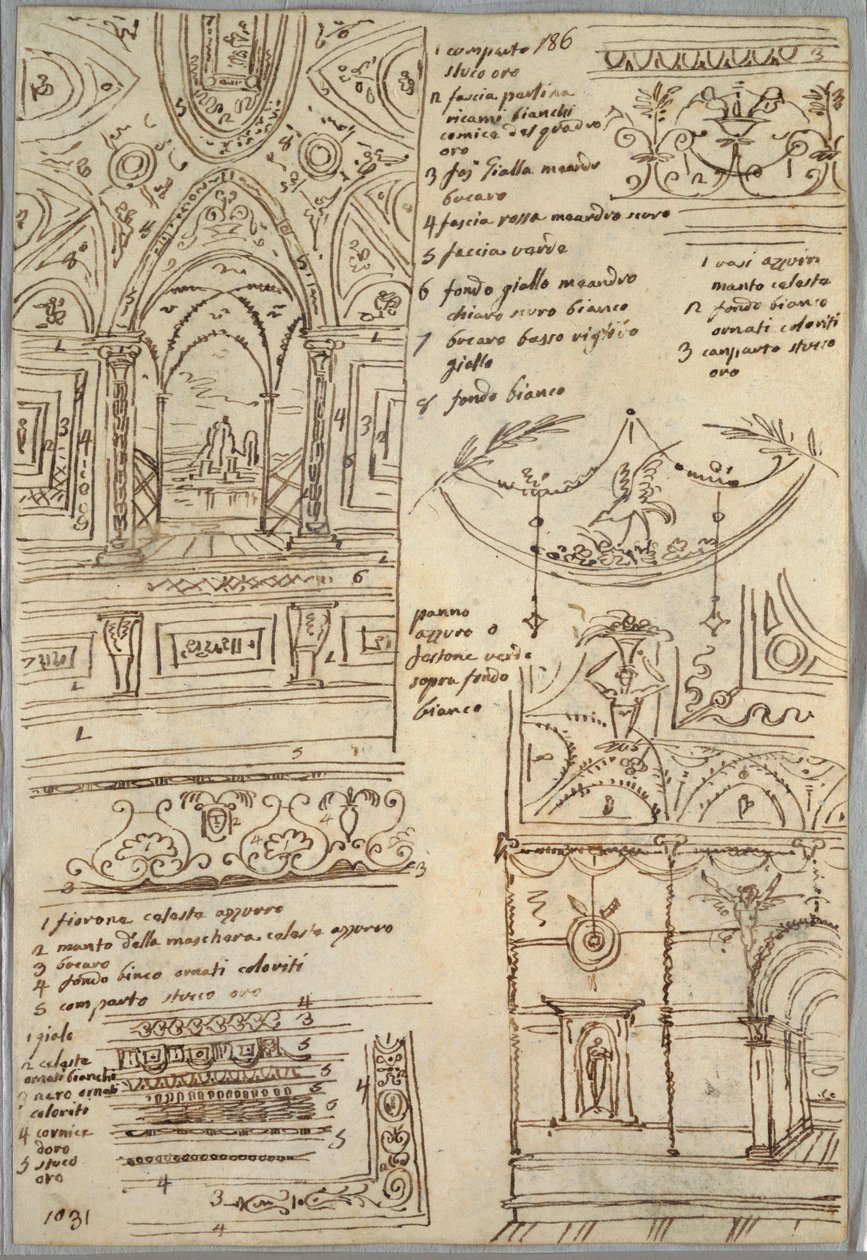 186
1 comparto
stuco oro
2 fascia paolina
ricami bianchi
cornice del quadro
oro
3 fas Gialla meandro
bucaro
4 fascia rossa meandro scuro
5 faccia verde
6 fondo giallo meandro
chiaro scuro bianco
7 bucaro basso
giallo
8 fondo bianco
1 vasi azzuri
manto celeste
2 fondo bianco
ornati coloriti
3 conparto stucco
oro
panno
azzuro
festone verde
sopra fondo
bianco
1 fiorone celeste azzurro
2 manto della maschera celeste azzurro
3 bucaro
4 fondo binco ornati coloriti
5 comparto stuco oro
1 gialo
2 celeste
ornati bianchi
3 nero ornati
colorito
4 cornice
doro
5 stuco
oro
1031